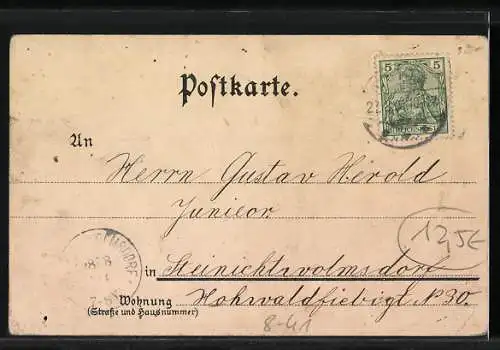 Postkarte.
5 5
An
Herrn Gustav Herold
Junior.
12,5€
in Steinichtwolmsdorf
Wohnung
Hohwaldfiebigt N 30.
(Straße und Hausnummer)
8-41